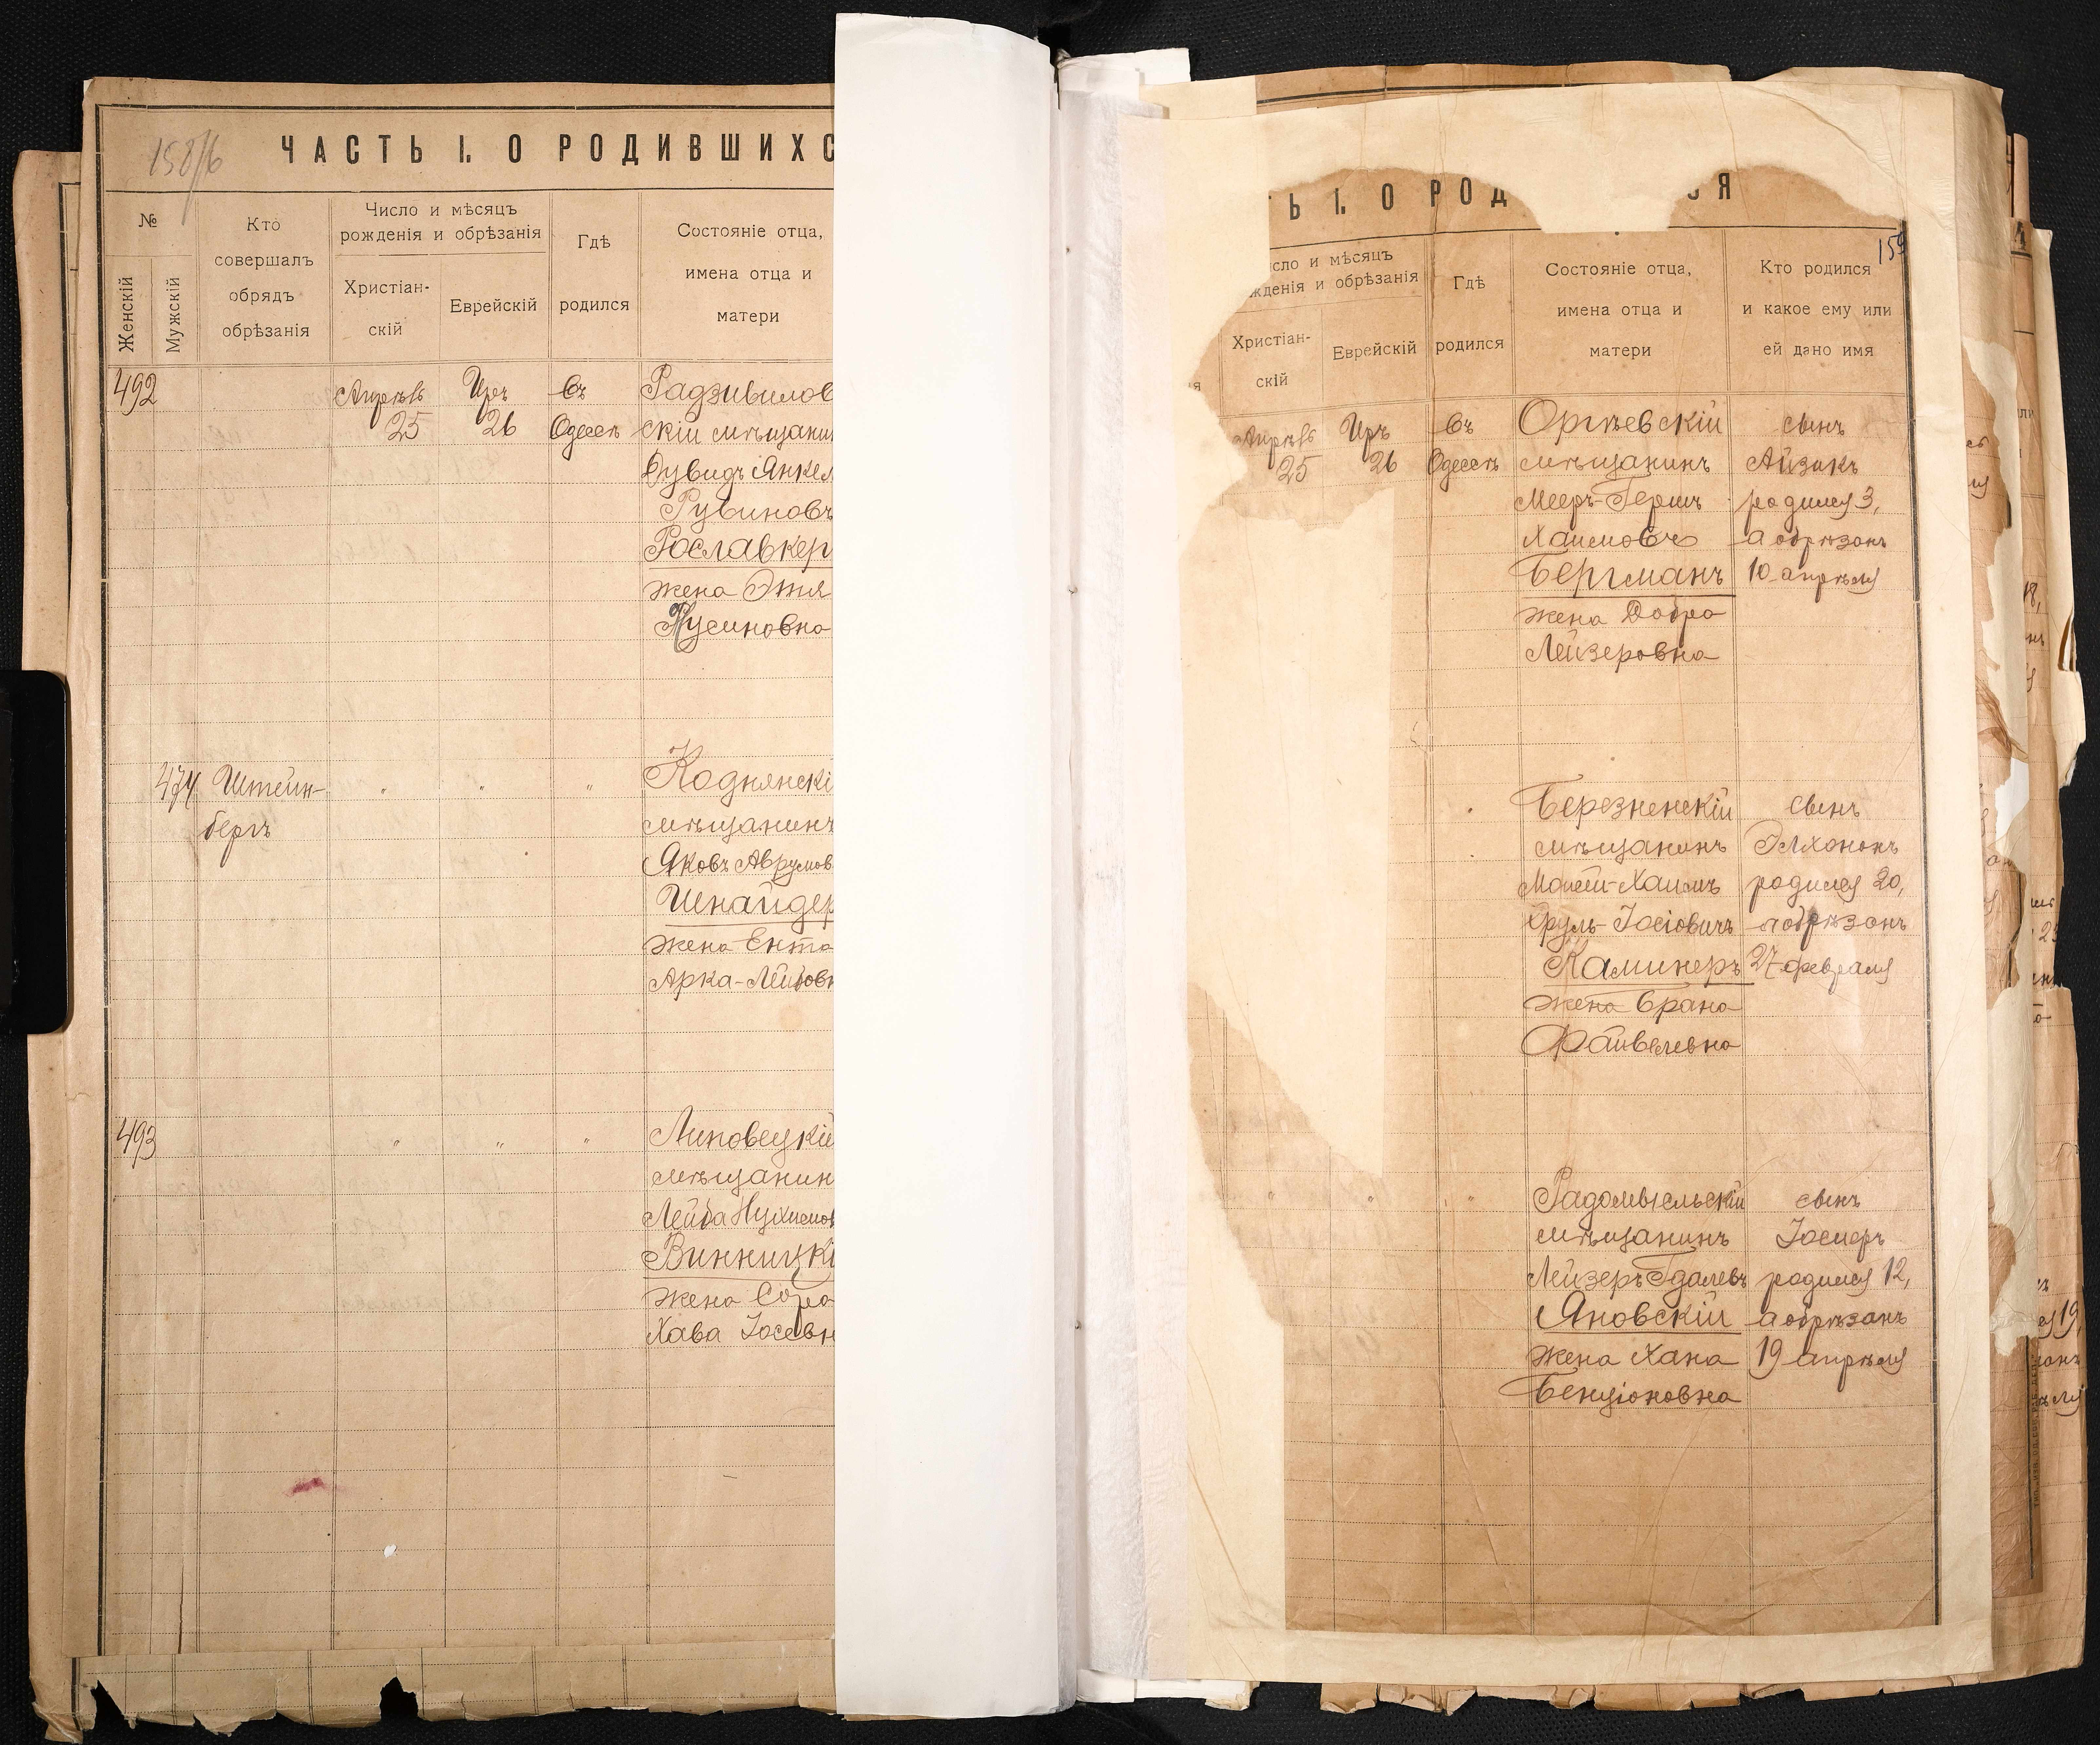 ЧАСТЬ I. О РОДИВШИХС
№
Женскій
Мужскій
Кто
совершалъ
обрядъ
обрѣзанія
Число и мѣсяцъ
рожденія и обрѣзанія
Христіан-
скій
Еврейскій
Гдѣ
родился
Состояніе отца,
имена отца и
матери
492
Апрѣль
25
Иръ
26
въ
Одессѣ
Радзивилов
скій мѣщанин
Дувидъ Янкел
Рувиновъ
Рославкер
жена Этя
Нусиновна
474
Штейн-
бергъ
" " "
Коднянскі
мѣщанинъ
Яковъ Аврумов
Шнайдер
жена Ента
Арка-Лейбовн
493
" " "
Липовецкій
мѣщанин
Лейба Нухимов
Винницкі
жена Сура
Хава Іосевн
Ь I. О РОД СЯ
159
сло и мѣсяцъ
жденія и обрѣзанія
Христіан-
скій
Еврейскій
Гдѣ
родился
Состояніе отца,
имена отца и
матери
Кто родился
и какое ему или
ей дано имя
Апрѣль
25
Иръ
26
въ
Одессѣ
Оргѣевскій
мѣщанинъ
Мееръ-Герш
Хаимовъ
Бергманъ
жена Добра
Лейзеровна
сынъ
Айзикъ
родился 3,
а обрѣзанъ
10 апрѣля
Березненскій
мѣщанинъ
Хаимъ
Сруль-Іосіовичъ
Каминеръ
жена Брана
Файвелевна
сынъ
Элхононъ
родился 20,
а обрѣзанъ
27 февраля
" " "
Радомысльскій
мѣщанинъ
Лейзеръ Гдалевъ
Яновскій
жена Хана
Бенціоновна
сынъ
Іосиеръ
родился 12,
а обрѣзанъ
19 апрѣля